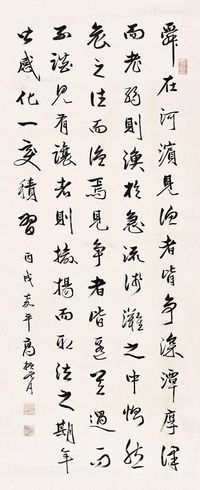 舜在河濱見漁者皆爭深潭厚澤
而老弱則漁於急流淺灘之中惻然
哀之往而漁焉見爭者皆匿其過而
不談見有讓者則揄揚而取法之期年
皆感化一變積習 丙戌